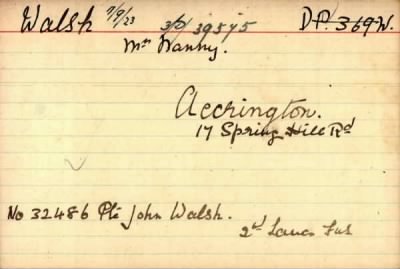 Walsh 7/9/23 3/D/39575 DP. 369W.
Mrs Nanny.
Accrington.
17 Spring Hill Rd
No 32486 Pte John Walsh.
2nd Lancs Fus